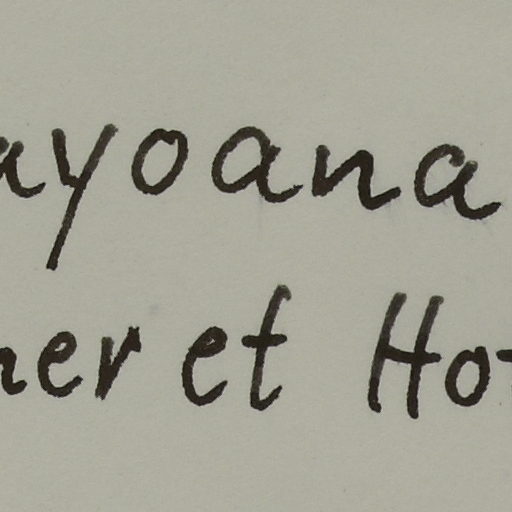 ayoana
ner et Hot